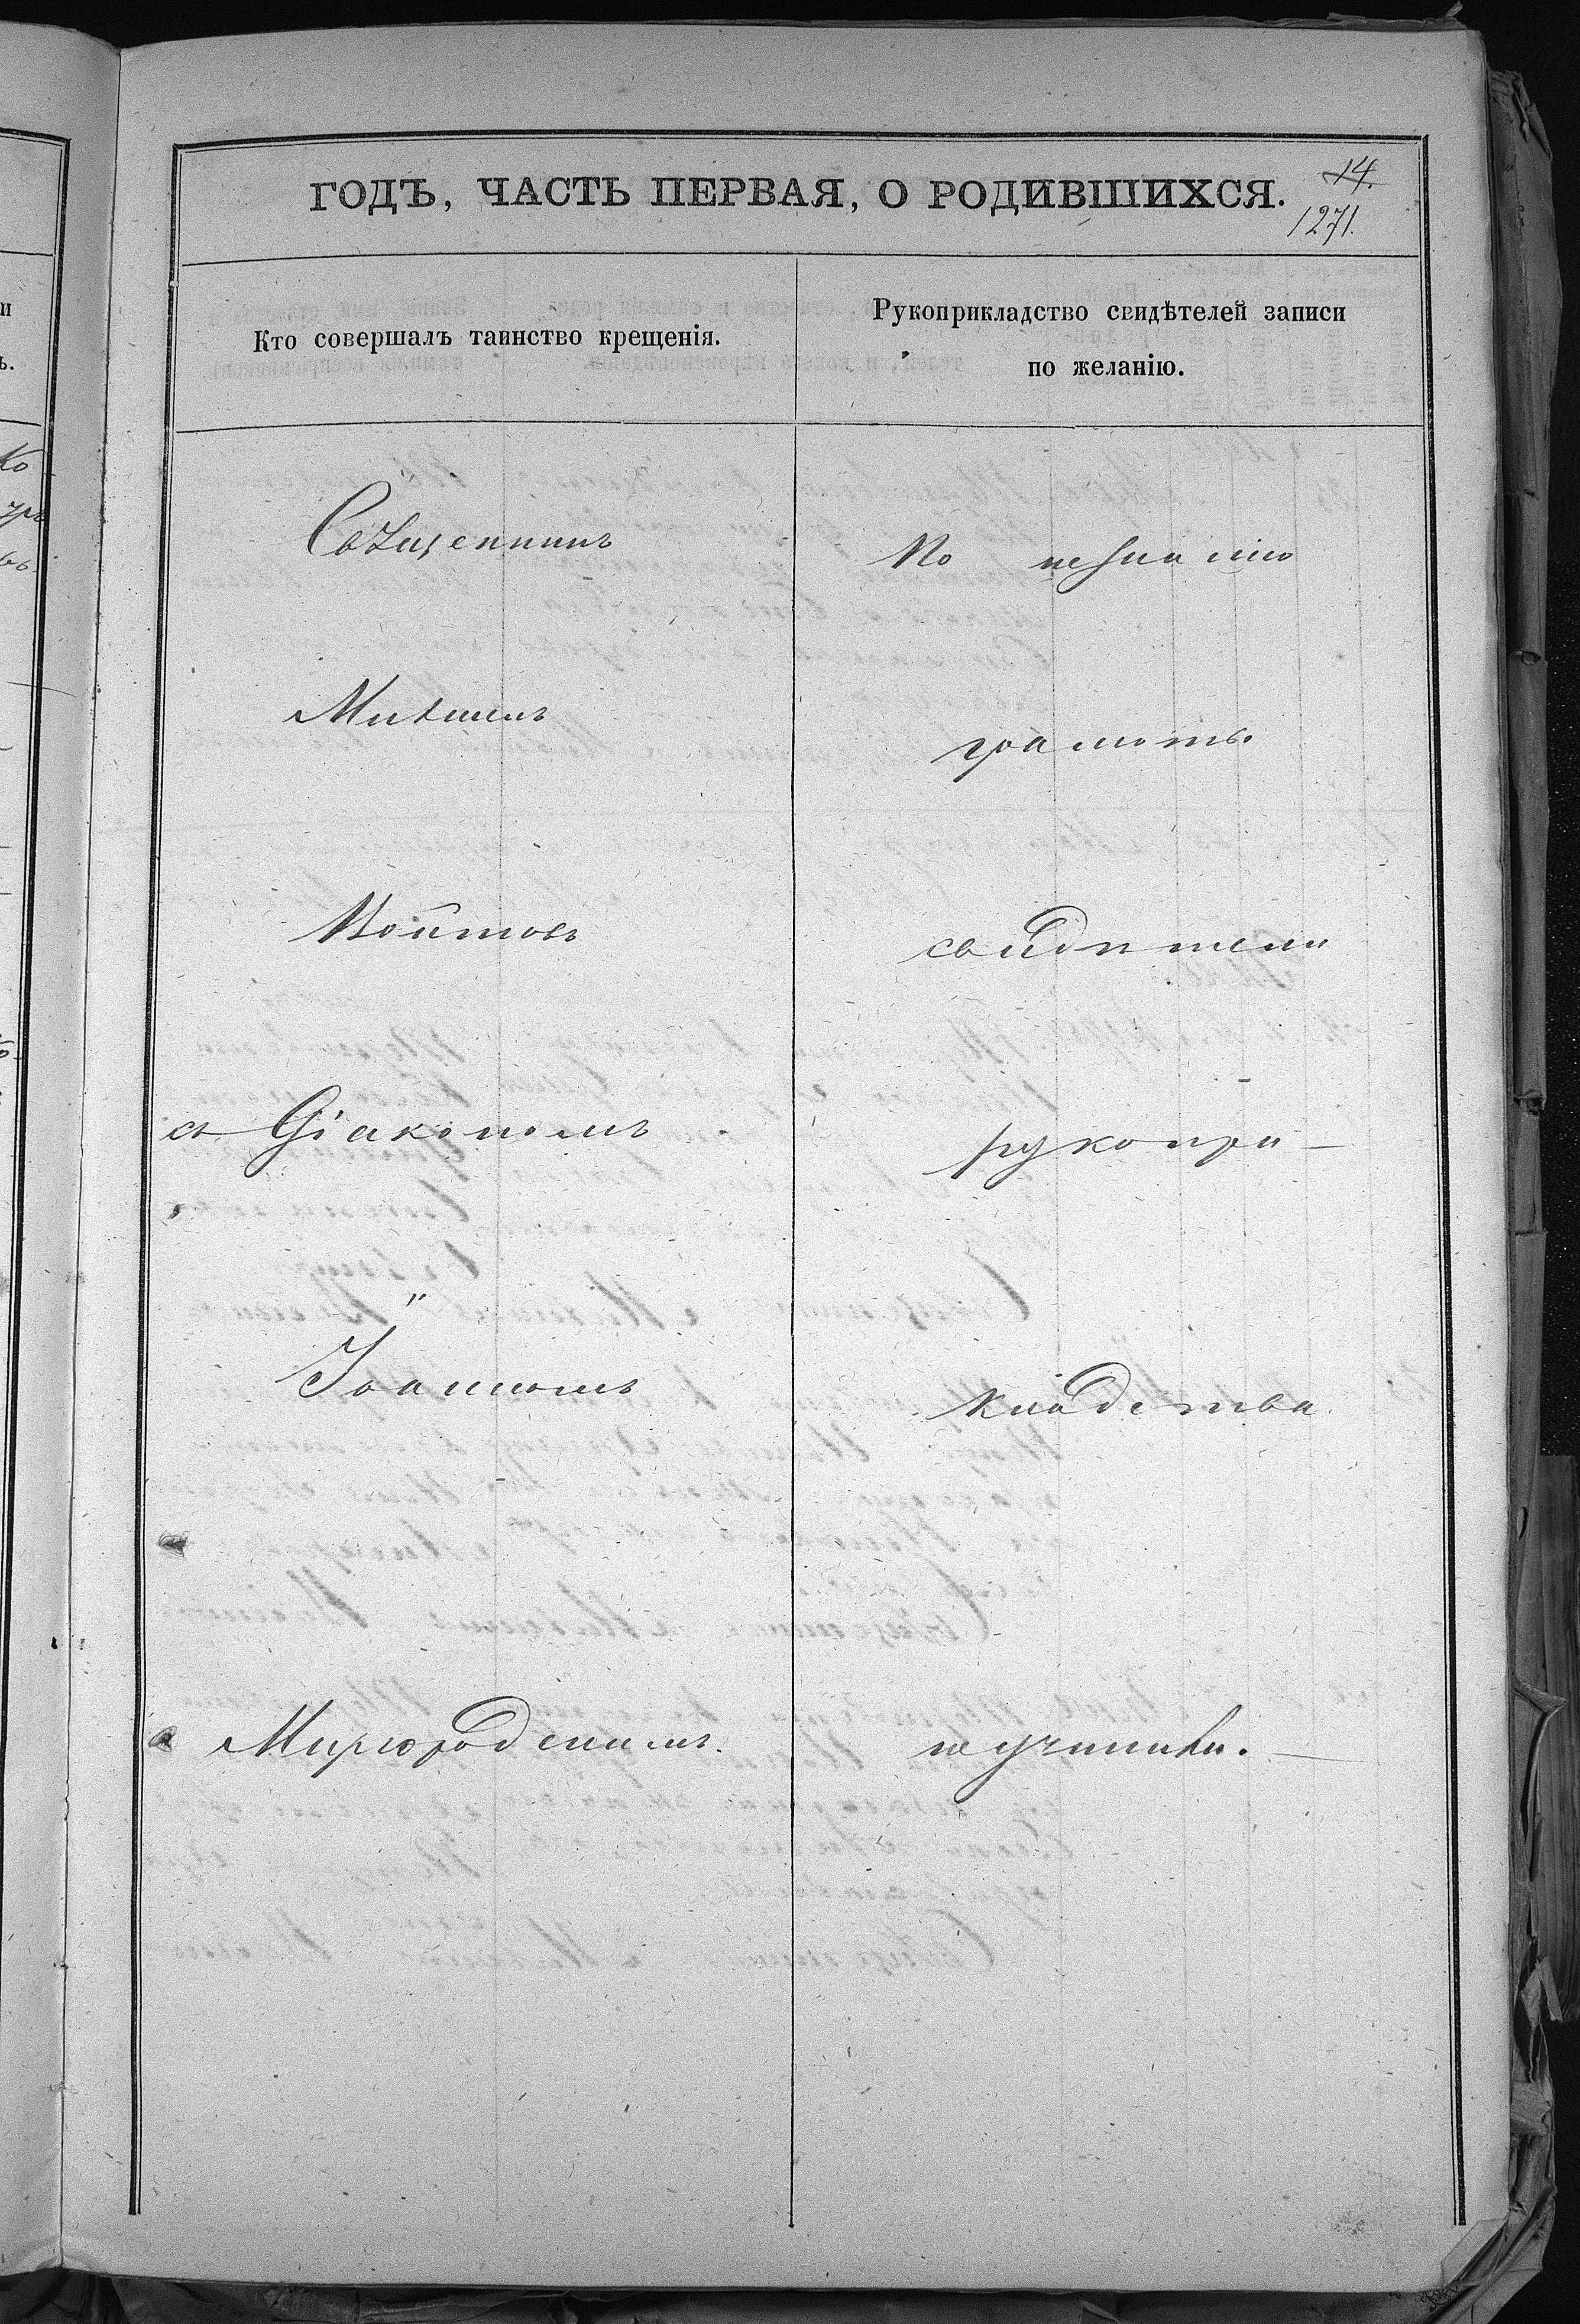 ГОДЪ, ЧАСТЬ ПЕРВАЯ, О РОДИВШИХСЯ.
14.
1271.
Кто совершалъ таинство крещенія.
Рукоприкладство свидѣтелей записи
по желанію.
Священникъ
Михаилъ
Войтовъ
съ Діакономъ
Іоанномъ
Миргородскимъ.
По незнанію
грамоты
свидѣтели
рукопри-
кладства
не учинили.